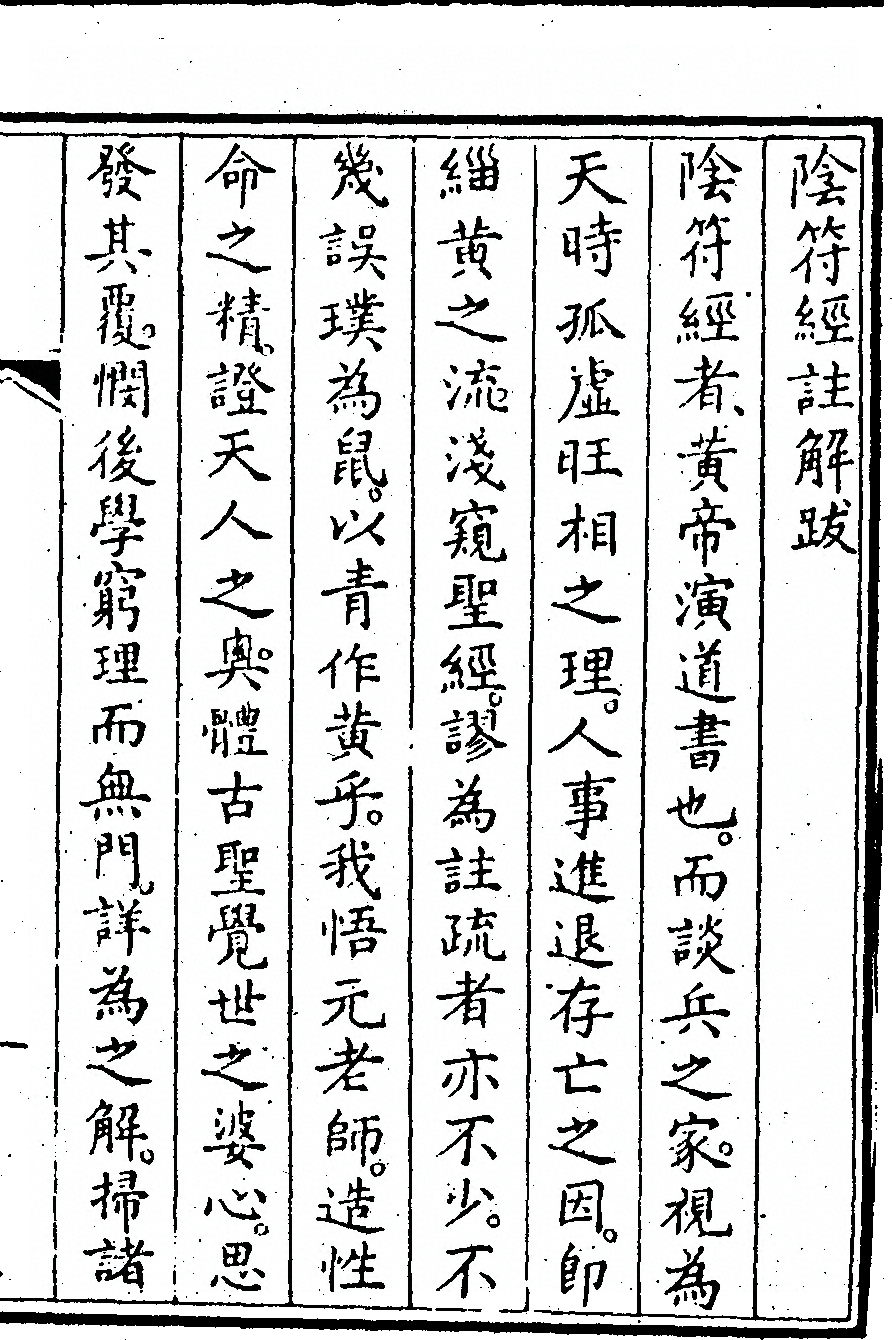 陰符經註解跋
陰符經者、黃帝演道書也。而談兵之家。視為
天時孤虛旺相之理。人事進退存亡之因。即
緇黃之流淺窺聖經。謬為註疏者亦不少。不
幾誤璞為鼠。以青作黃乎。我悟元老師。造性
命之精。證天人之奧。體古聖覺世之婆心。思
發其覆。憫後學窮理而無門。詳為之解。掃諸